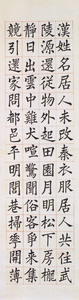 漢姓名居人未改秦衣服居人共住武
陵源還從物外起田園月明松下房櫳
靜日出雲中雞犬喧驚聞俗客爭來集
競引還家問都邑平明閭巷掃花開薄